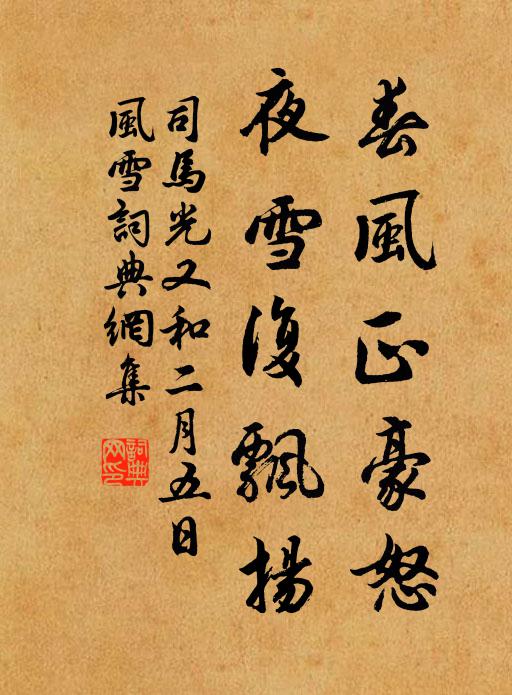 春風正豪怒
夜雪復飄揚
司馬光又和二月五日
風雪詞典網集
詞典網印